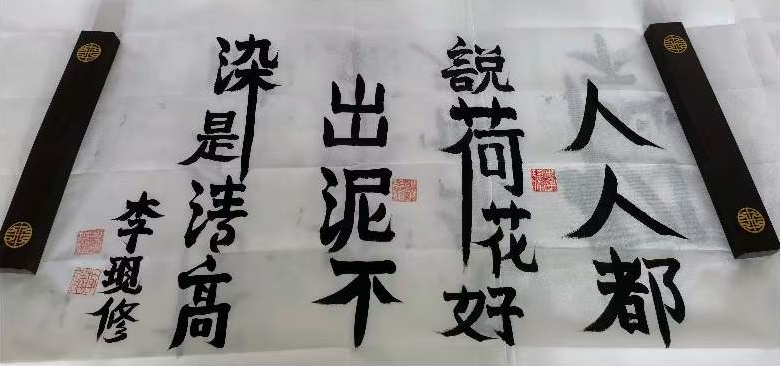 人人都
説荷花好
出泥不
染是清高
李現修